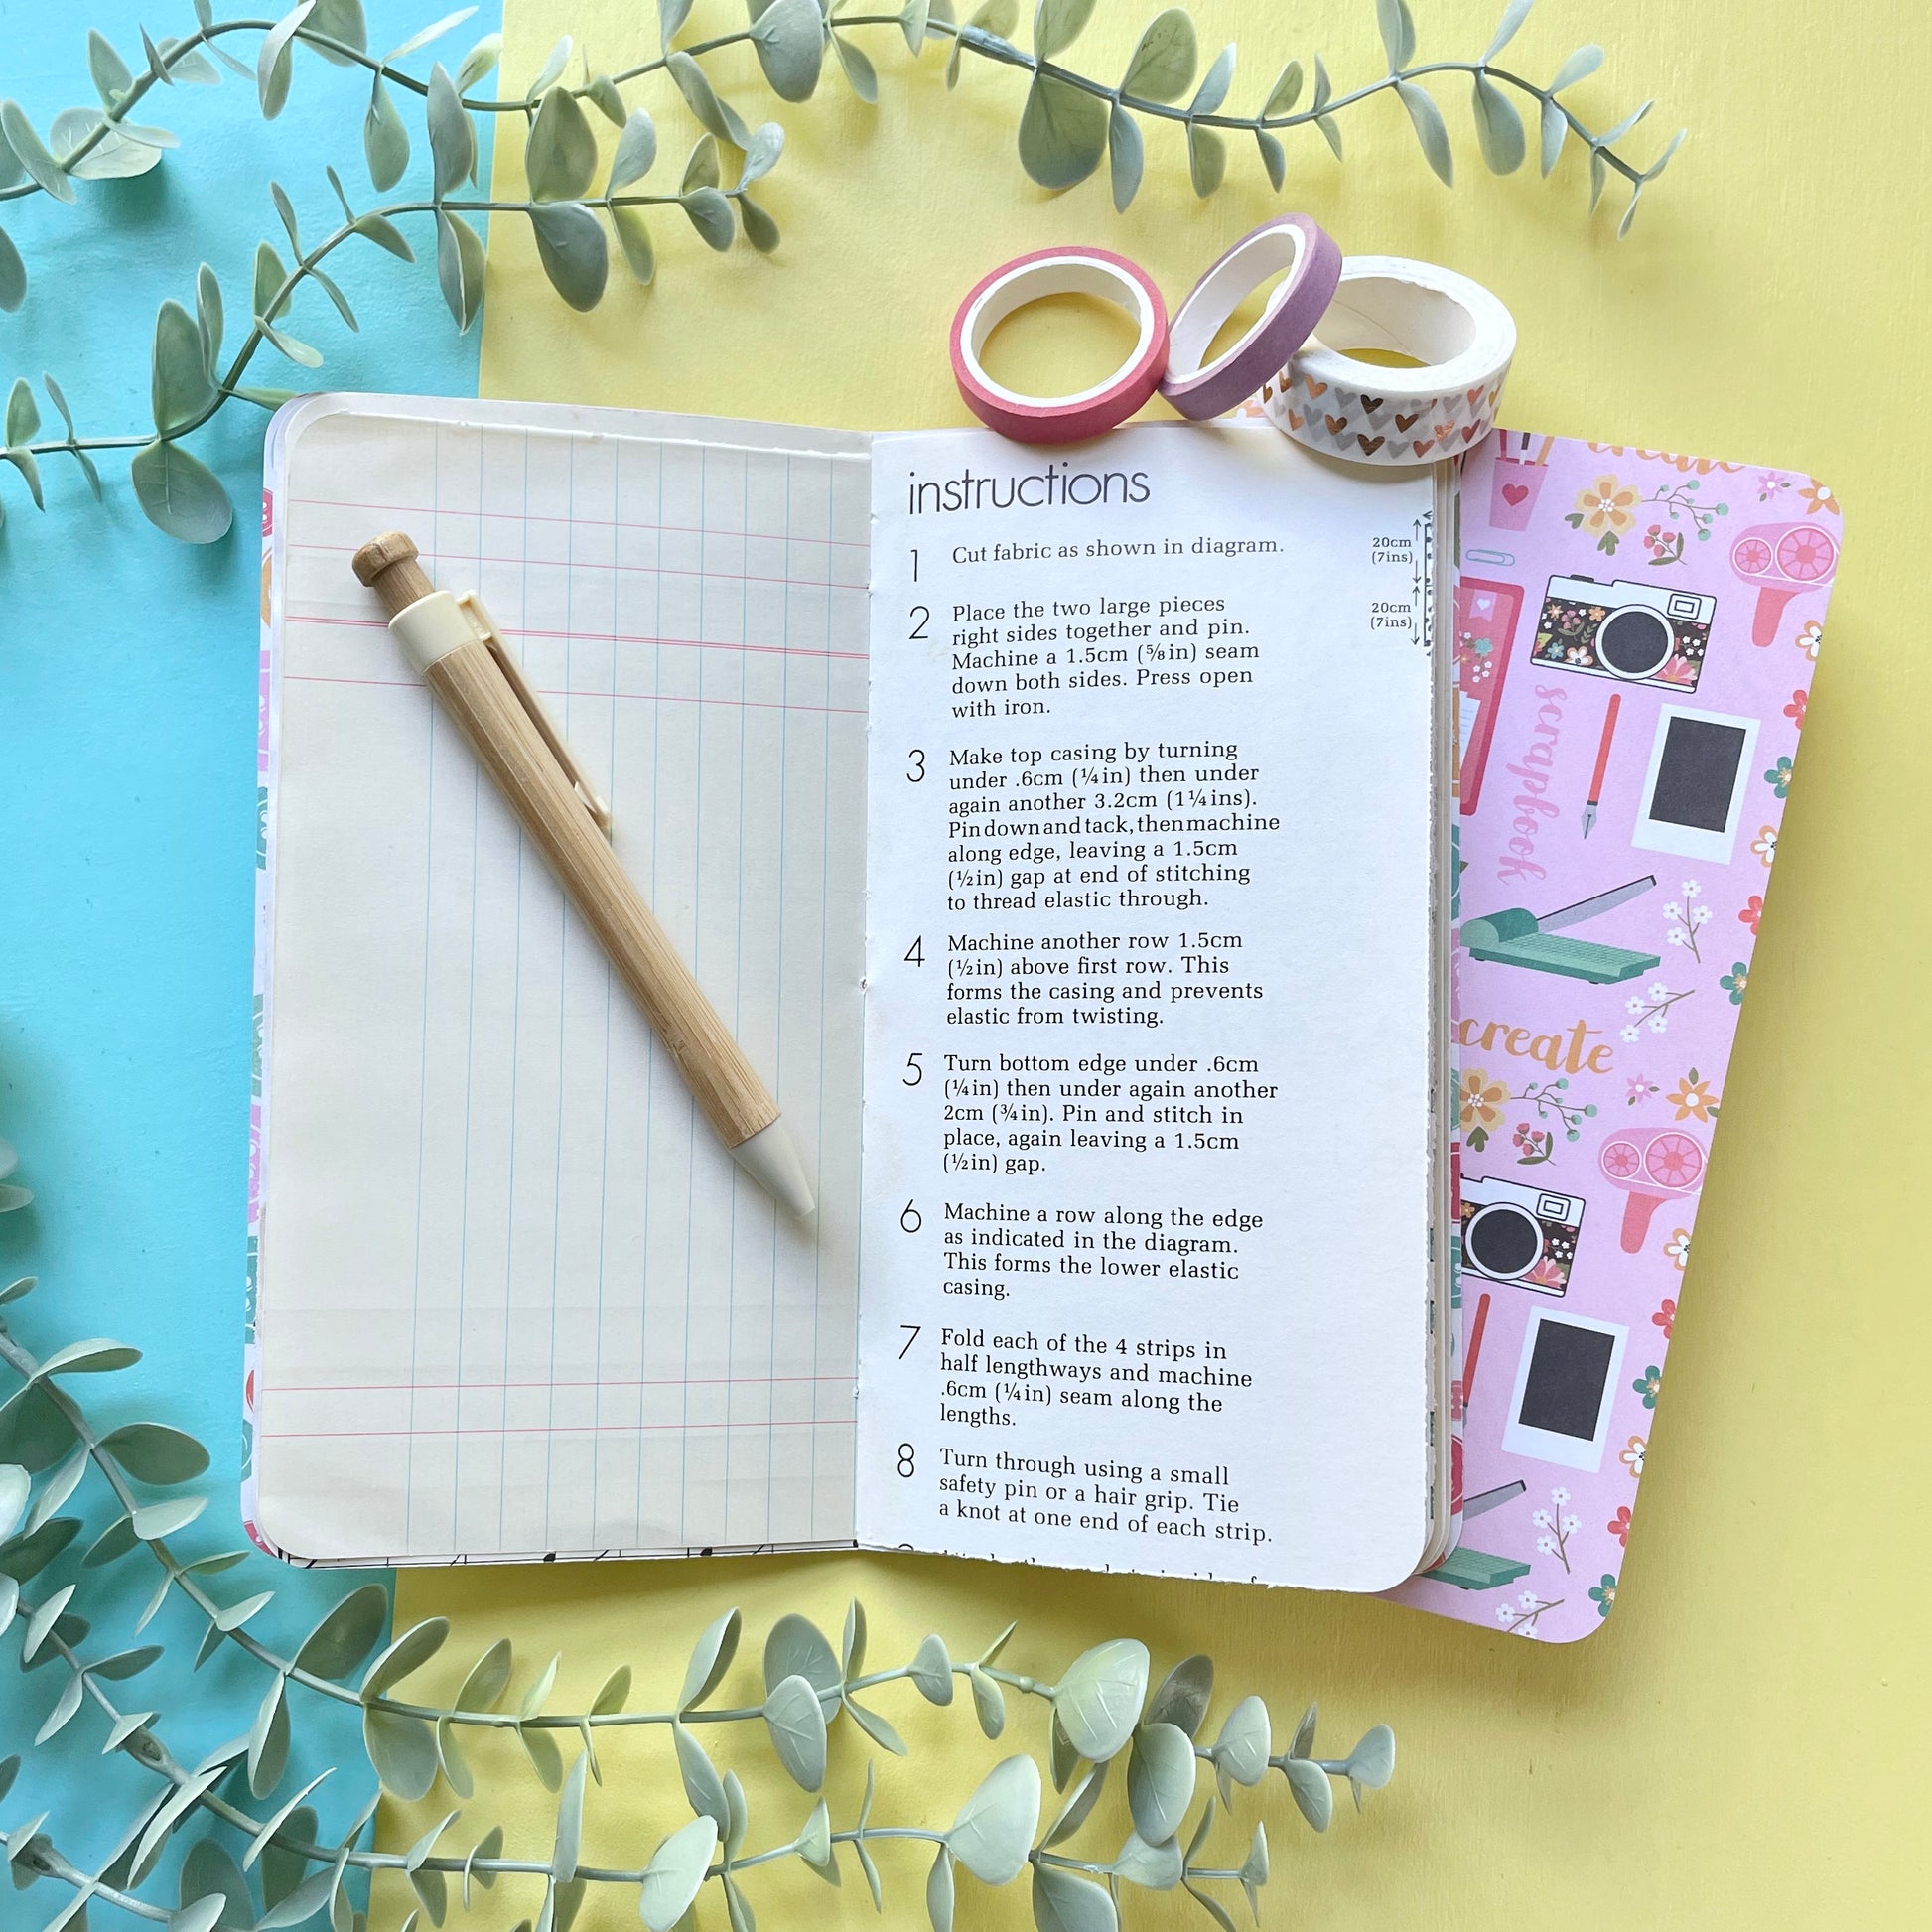 instructions
1 Cut fabric as shown in diagram.
2 Place the two large pieces
right sides together and pin.
Machine a 1.5cm (⅝in) seam
down both sides. Press open
with iron.
3 Make top casing by turning
under .6cm (¼in) then under
again another 3.2cm (1¼ins).
Pin down and tack, then machine
along edge, leaving a 1.5cm
(½in) gap at end of stitching
to thread elastic through.
4 Machine another row 1.5cm
(½in) above first row. This
forms the casing and prevents
elastic from twisting.
5 Turn bottom edge under .6cm
(¼in) then under again another
2cm (¾in). Pin and stitch in
place, again leaving a 1.5cm
(½in) gap.
6 Machine a row along the edge
as indicated in the diagram.
This forms the lower elastic
casing.
7 Fold each of the 4 strips in
half lengthways and machine
.6cm (¼in) seam along the
lengths.
8 Turn through using a small
safety pin or a hair grip. Tie
a knot at one end of each strip.
20cm
(7ins)
20cm
(7ins)
create
scrapbook
create